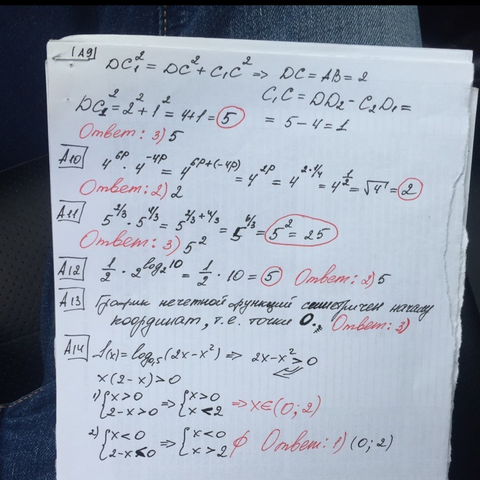 A9
DC₁² = DC² + C₁C² => DC = AB = 2
C₁C = DD₂ - C₂D₁ =
DC₂² = 2² + 1² = 4+1 = 5 = 5 - 4 = 1
Ответ: 3) 5
A10 4^(6p) · 4^(-4p) = 4^(6p+(-4p)) = 4^(2p) = 4^(2·1/4) = 4^(1/2) = √4 = 2
Ответ: 2) 2
A11 5^(2/3) · 5^(4/3) = 5^(2/3+4/3) = 5^(6/3) = 5² = 25
Ответ: 3) 5²
A12 1/2 · 2^(log₂10) = 1/2 · 10 = 5 Ответ: 2) 5
A13 График нечетной функций симетричен началу
координат, т.е. точки 0., Ответ: 3)
A14 f(x) = log₀,₅(2x-x²) => 2x-x² > 0
x(2-x) > 0
1) { x>0 2-x>0 => { x>0 x<2 => x∈(0;2)
2) { x<0 2-x<0 => { x<0 x>2 ∅ Ответ: 1) (0;2)